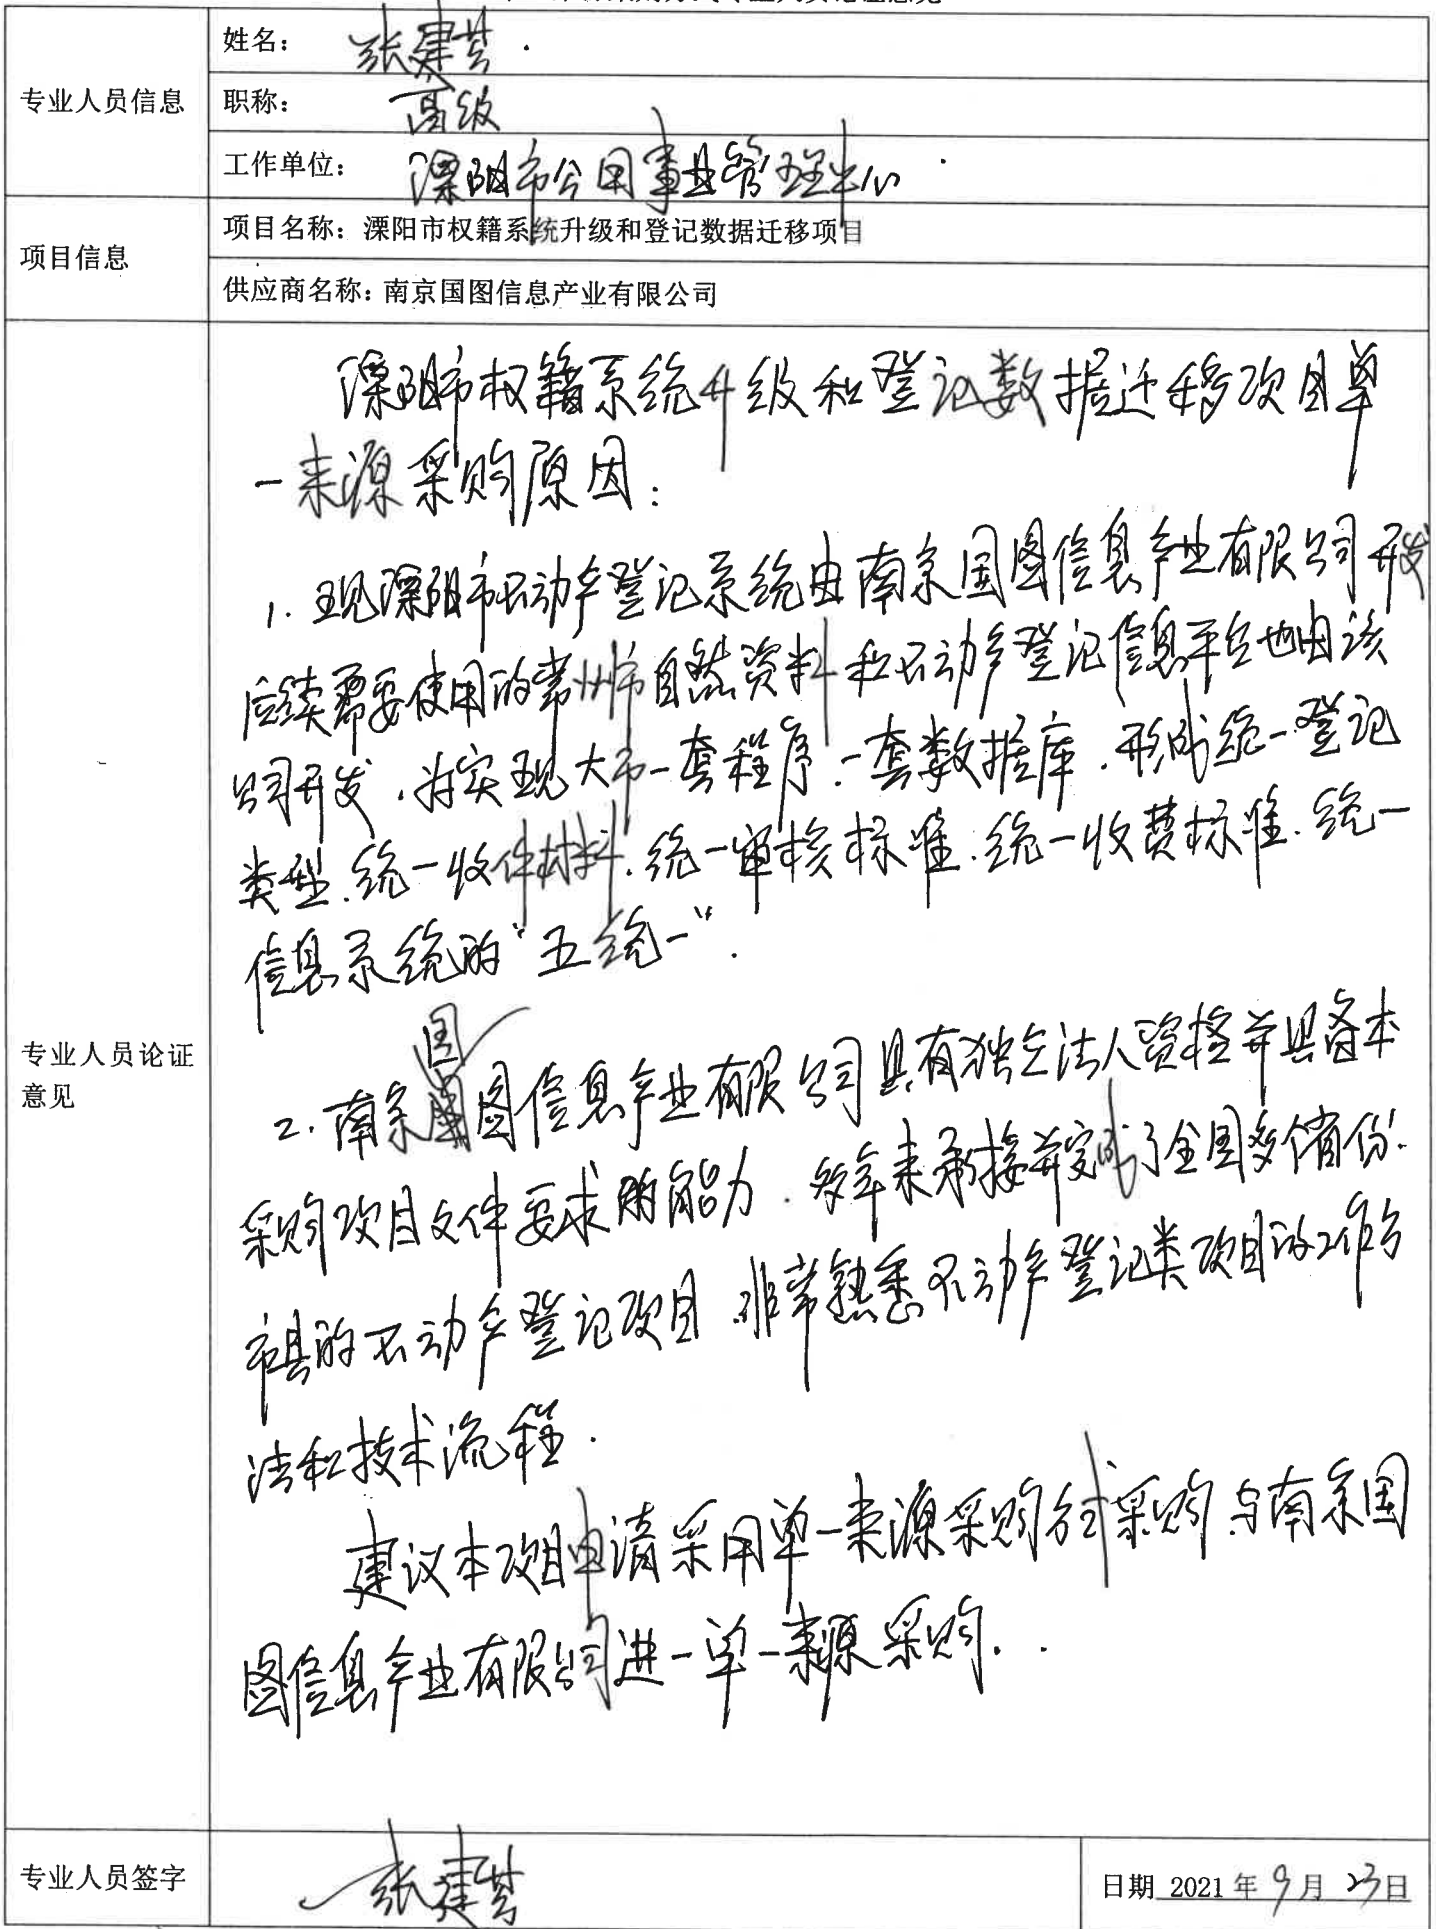 专业人员信息
姓名: 张建芳
职称: 高级
工作单位: 溧阳市公用事业管理中心
项目信息
项目名称: 溧阳市权籍系统升级和登记数据迁移项目
供应商名称: 南京国图信息产业有限公司
专业人员论证
意见
溧阳市权籍系统升级和登记数据迁移项目单
一来源采购原因:
1. 现溧阳市不动产登记系统由南京国图信息产业有限公司开发
后续需要使用的常州市自然资料和不动产登记信息平台也由该
公司开发,为实现大市一套程序、一套数据库,形成统一登记
类型、统一收件材料、统一审核标准、统一收费标准、统一
信息系统的"五统一".
2. 南京国图信息产业有限公司具有独立法人资格并具备本
采购项目文件要求的能力,多年来承接并完成了全国多个省份、
市县的不动产登记项目,非常熟悉不动产登记类项目的工作方
法和技术流程.
建议本项目申请采用单一来源采购方式采购,与南京国
图信息产业有限公司进一单一来源采购.
专业人员签字
张建芳
日期 2021 年 9 月 23 日